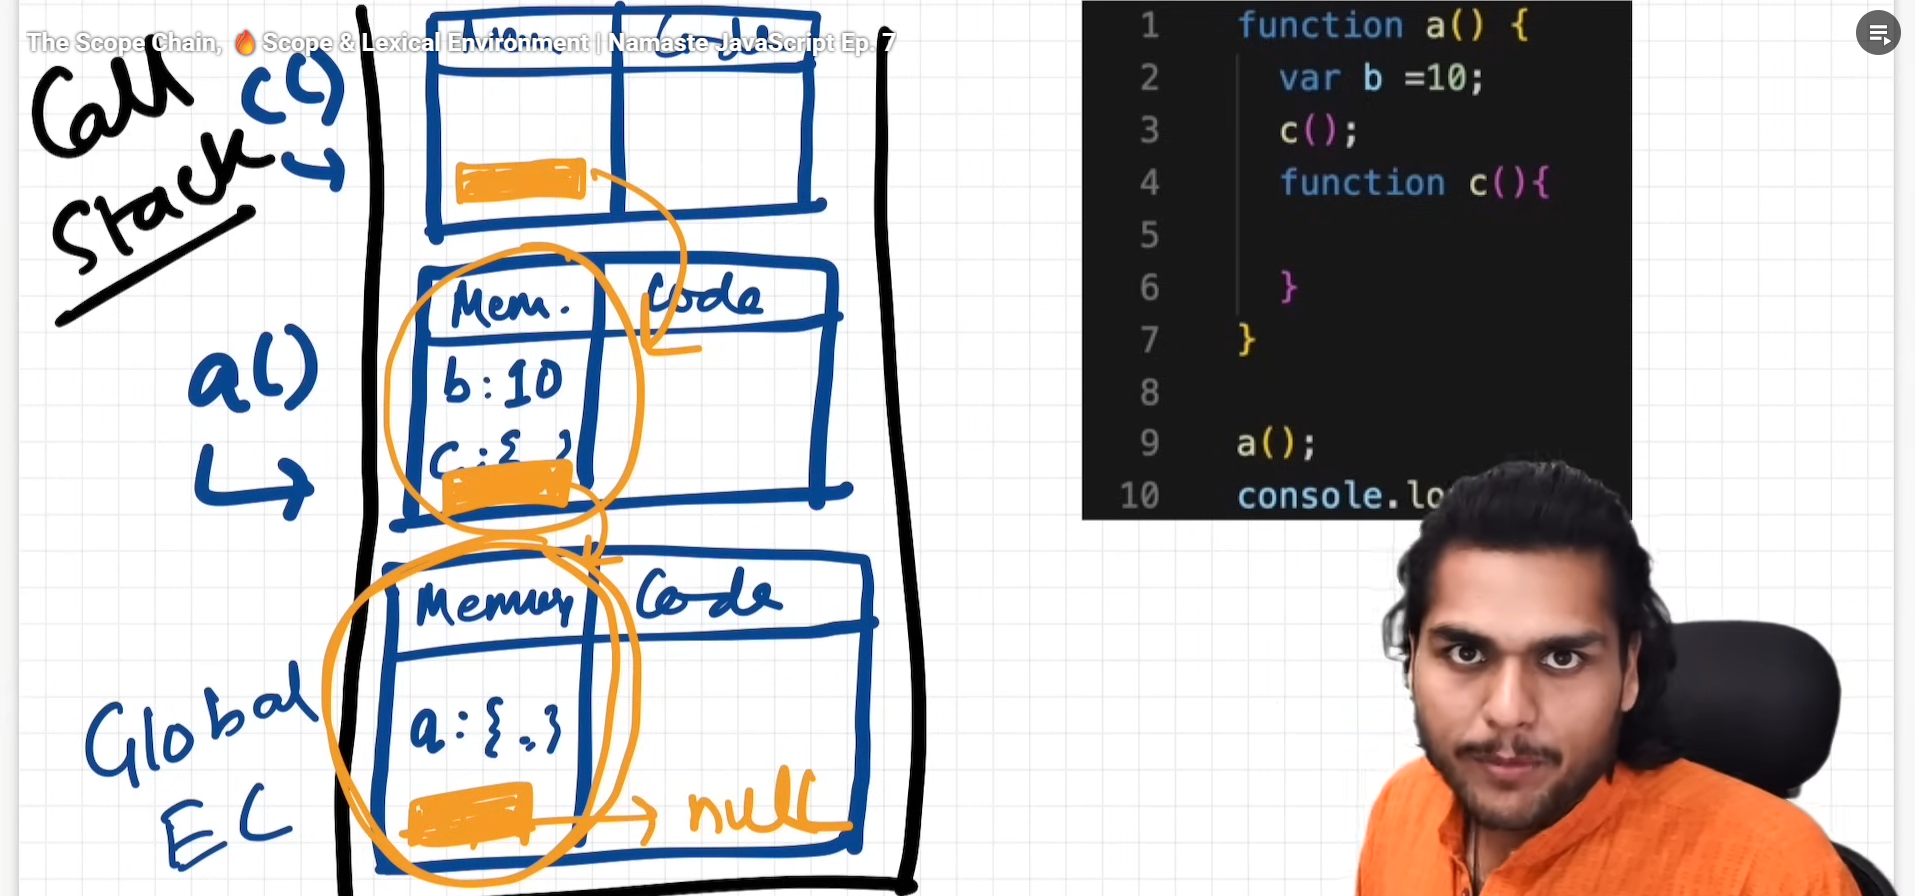 The Scope Chain, 🔥 Scope & Lexical Environment | Namaste JavaScript Ep. 7
Call
Stack
c()
Mem.
Code
a()
Mem.
Code
b : 10
c : {
Global
EC
Memory
Code
a : { . }
null
1 function a() {
2 var b =10;
3 c();
4 function c(){
5
6 }
7 }
8
9 a();
10 console.lo